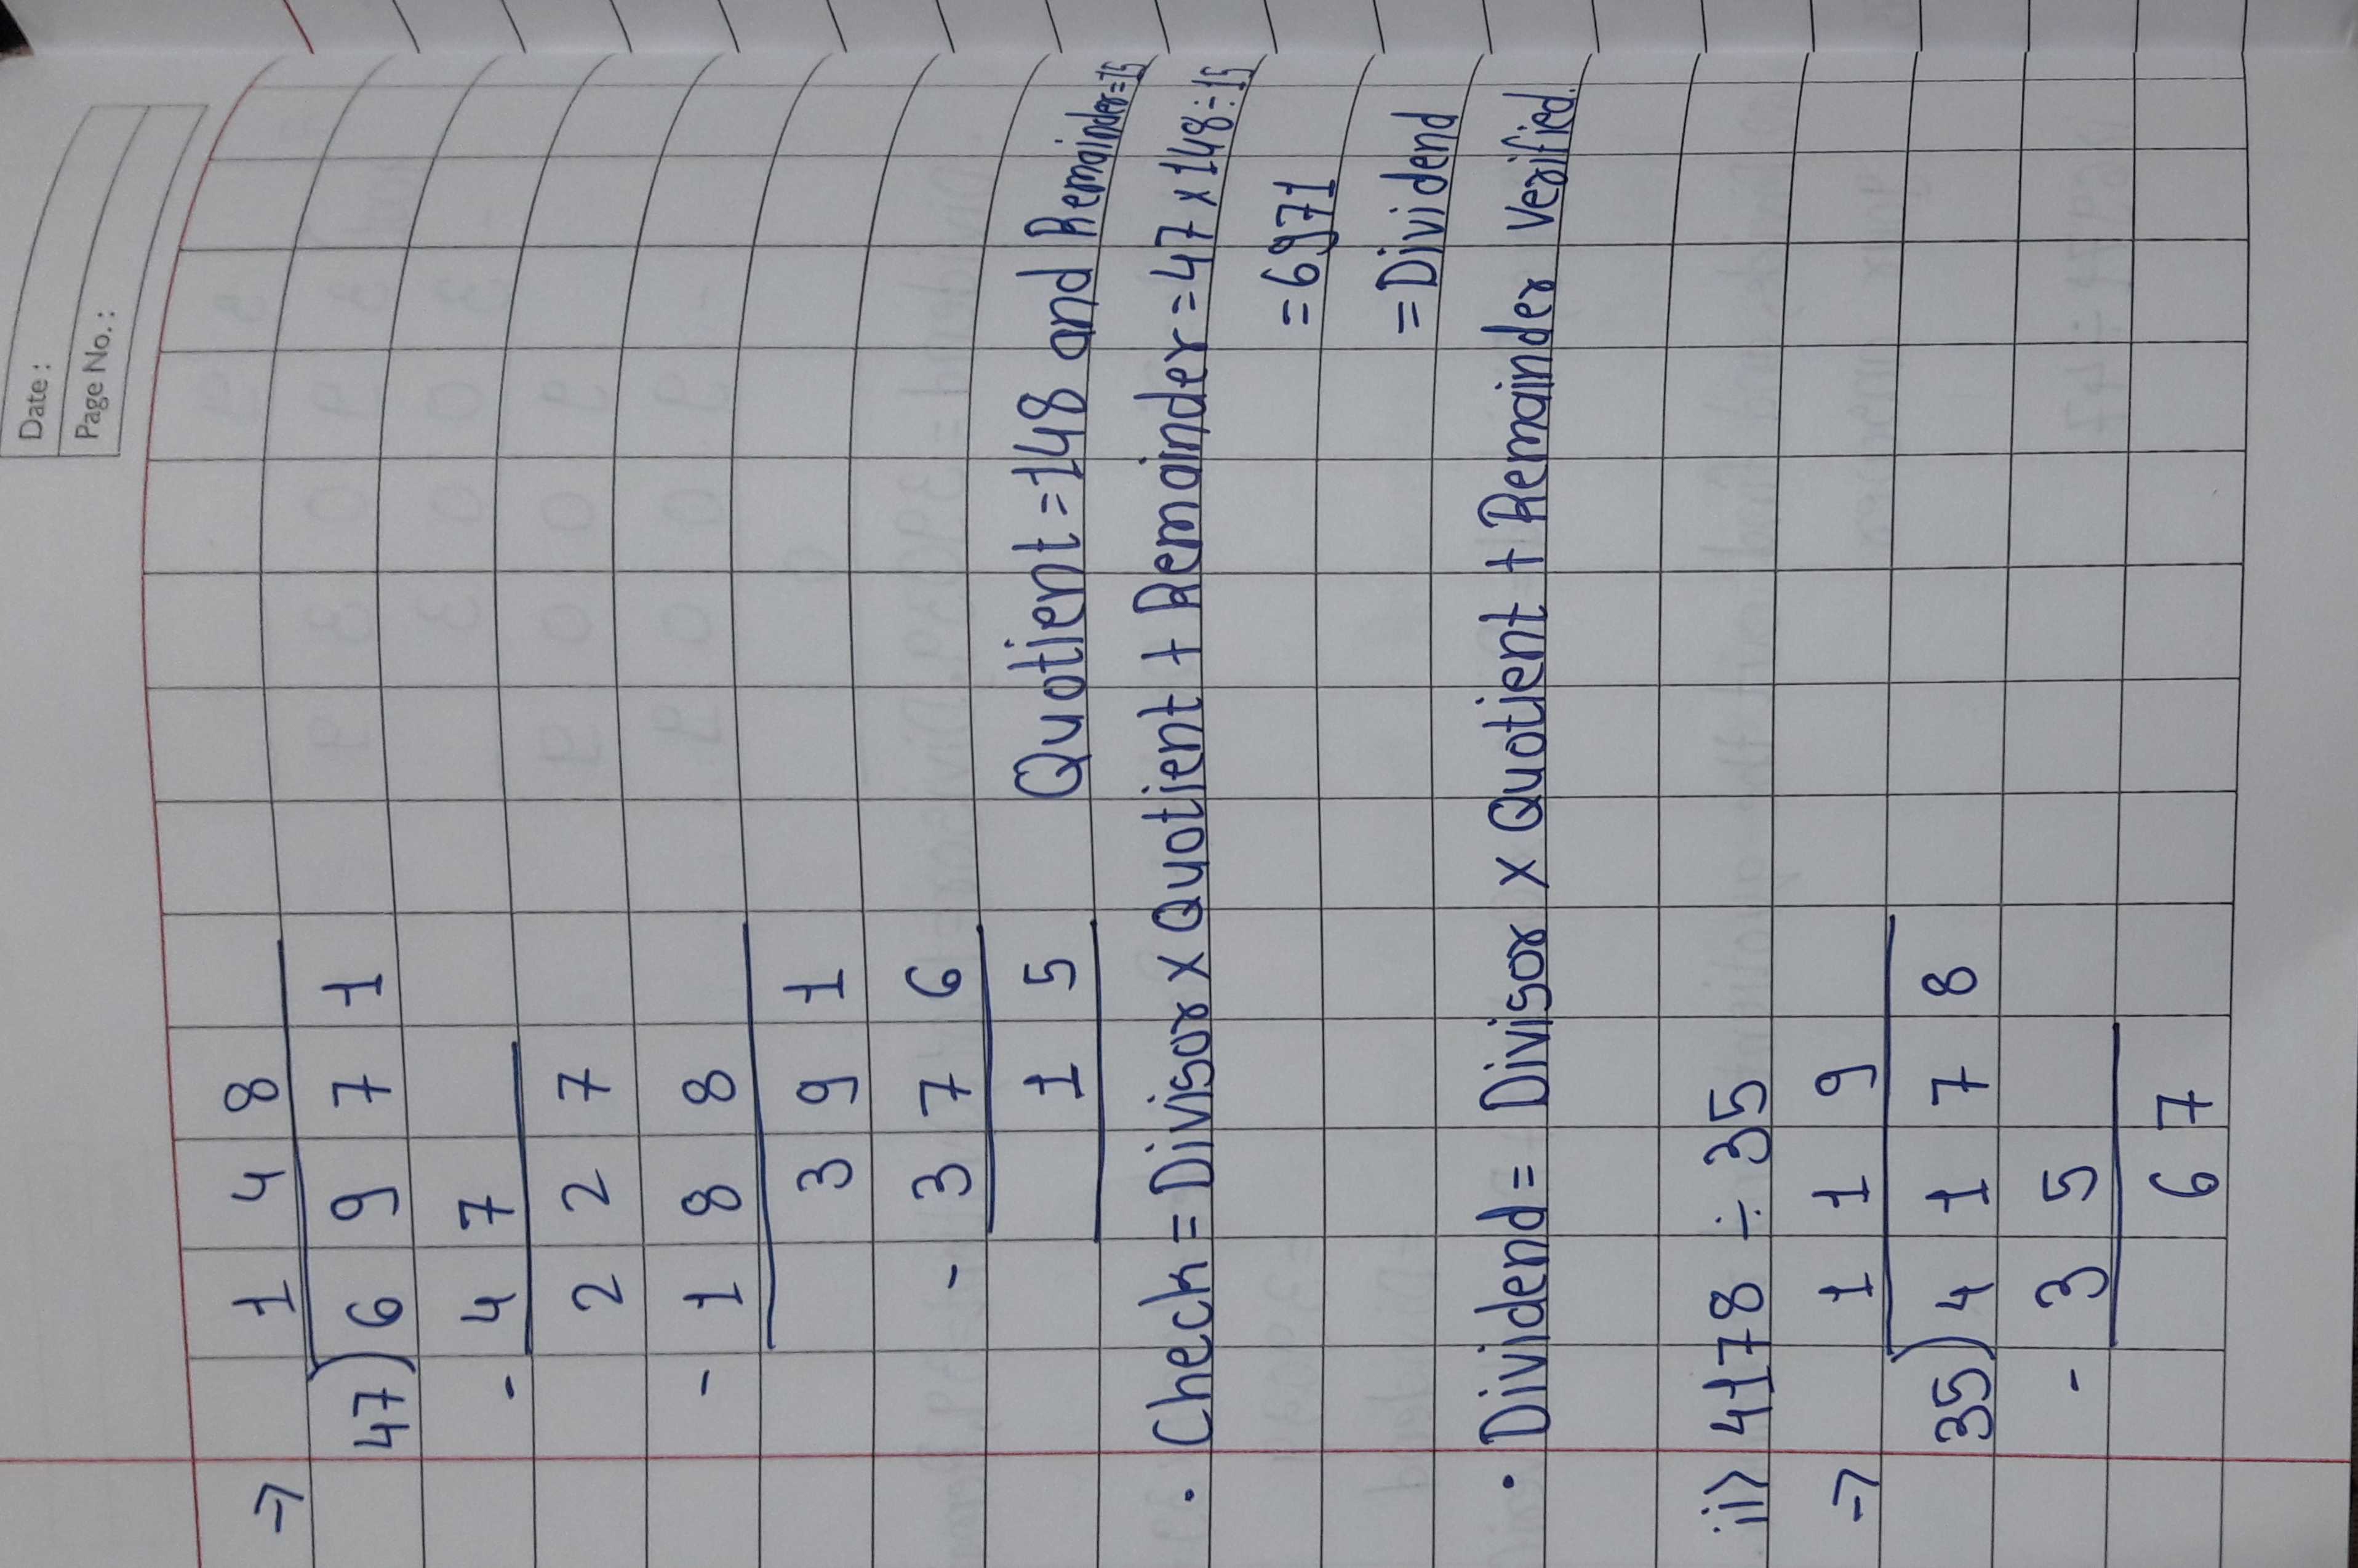 Date:
Page No.:
→ 1 4 8
47) 6 9 7 1
- 4 7
2 2 7
- 1 8 8
3 9 1
- 3 7 6
1 5 Quotient = 148 and Remainder = 15
• Check = Divisor x Quotient + Remainder = 47 x 148 ÷ 15
= 6971
= Dividend
• Dividend = Divisor x Quotient + Remainder Verified.
ii) 4178 ÷ 35
→ 1 1 9
35) 4 1 7 8
- 3 5
6 7